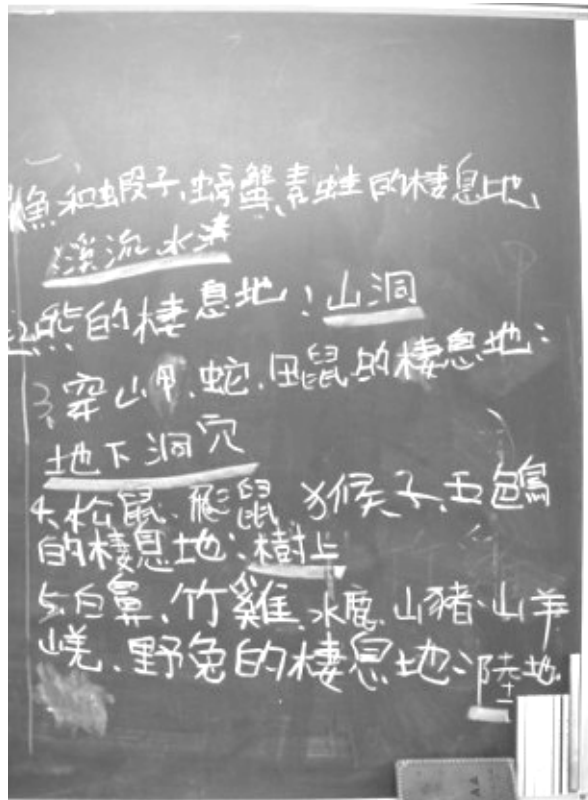 一、
魚和蝦子、螃蟹、青蛙的棲息地、
溪流水溝
2.熊的棲息地:山洞
3、穿山甲、蛇、田鼠的棲息地:
地下洞穴
4、松鼠、飛鼠 猴子、五色鳥
的棲息地:樹上
5、白鼻、竹雞、水鹿、山豬、山羊
、野兔的棲息地:陸地